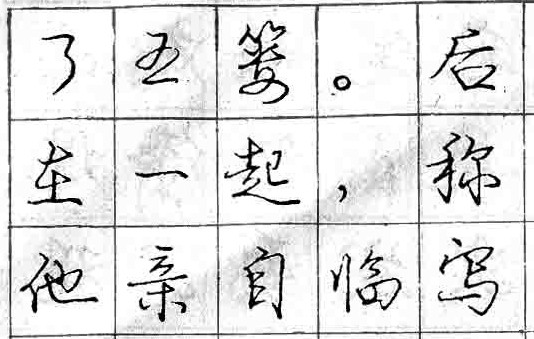 了五篓。后
在一起,称
他亲自临写